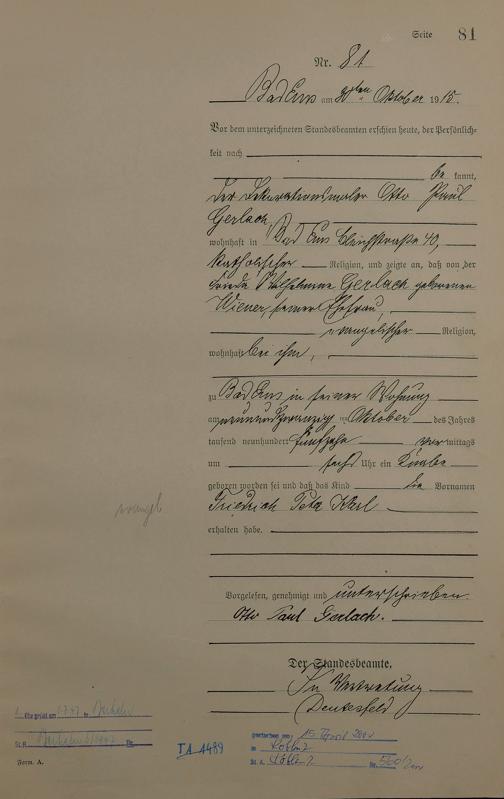 Seite 81
Nr. 81
Bad Ems am 30ten Oktober 1915.
Vor dem unterzeichneten Standesbeamten erschien heute, der Persönlich-
keit nach
be kannt,
der Dekorationsmaler Otto Paul
Gerlach,
wohnhaft in Bad Ems Bleichstraße 40,
katholischer Religion, und zeigte an, daß von der
Frieda Wilhelmine Gerlach geborenen
Wiener, seiner Ehefrau,
evangelischer Religion,
wohnhaft bei ihm,
zu Bad Ems in seiner Wohnung
am neunundzwanzig ten Oktober des Jahres
tausend neunhundert fünfzehn vor mittags
um sechs Uhr ein Knabe
geboren worden sei und daß das Kind die Vornamen
Friedrich Peter Karl
erhalten habe.
Vorgelesen, genehmigt und unterschrieben.
Otto Paul Gerlach.
Der Standesbeamte.
In Vertretung
1. Ehe geschl. am 1.7.47 in
St. A. Nr.
Form. A.
I A 1489
gestorben am: 15. April
in Koblenz
St. A. Koblenz Nr.